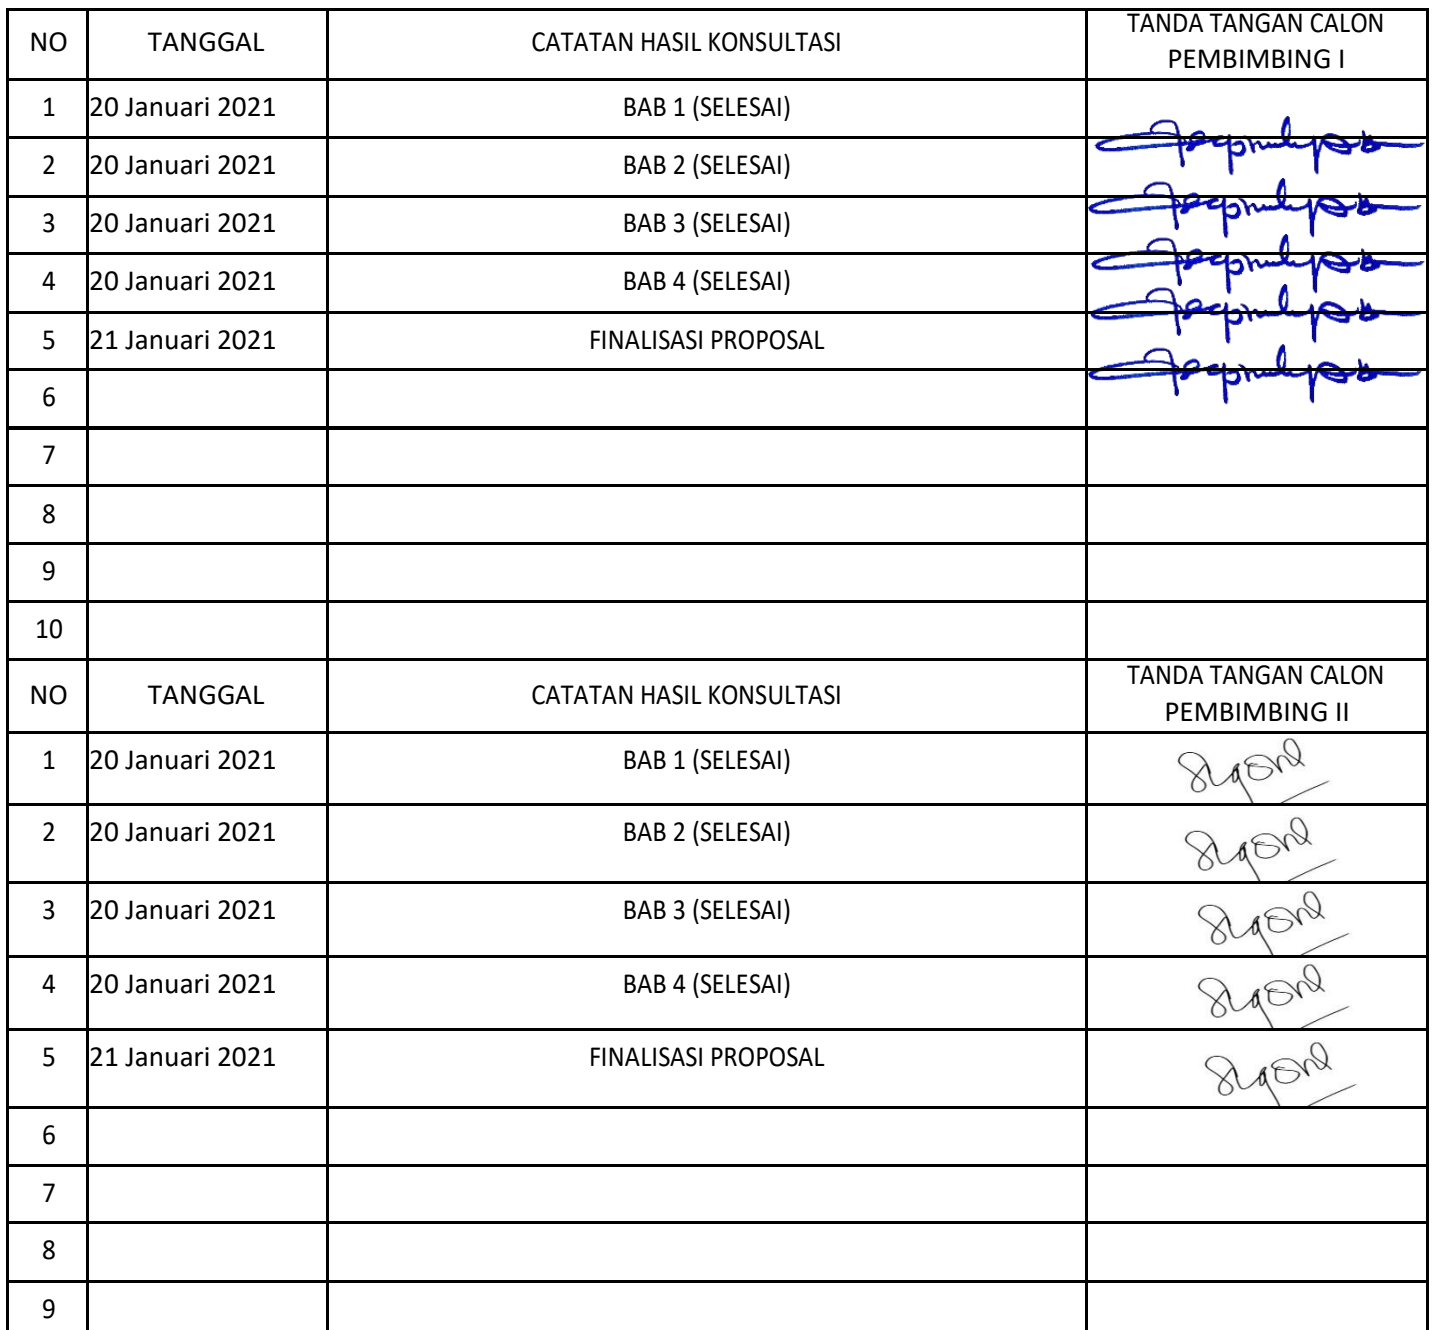 NO TANGGAL CATATAN HASIL KONSULTASI TANDA TANGAN CALON
PEMBIMBING I
1 20 Januari 2021 BAB 1 (SELESAI)
2 20 Januari 2021 BAB 2 (SELESAI)
3 20 Januari 2021 BAB 3 (SELESAI)
4 20 Januari 2021 BAB 4 (SELESAI)
5 21 Januari 2021 FINALISASI PROPOSAL
6
7
8
9
10
NO TANGGAL CATATAN HASIL KONSULTASI TANDA TANGAN CALON
PEMBIMBING II
1 20 Januari 2021 BAB 1 (SELESAI)
2 20 Januari 2021 BAB 2 (SELESAI)
3 20 Januari 2021 BAB 3 (SELESAI)
4 20 Januari 2021 BAB 4 (SELESAI)
5 21 Januari 2021 FINALISASI PROPOSAL
6
7
8
9